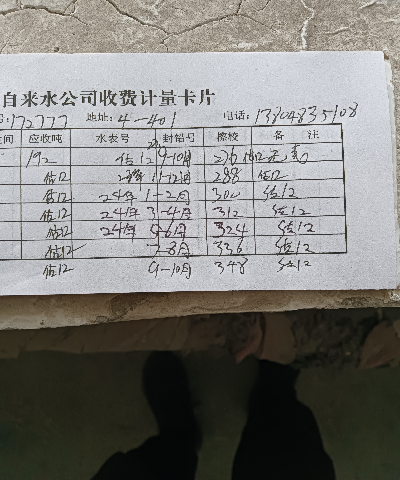 自来水公司收费计量卡片
172777 地址: 4-401 电话: 13804835108
间 应收吨 水表号 封铅号 擦校 备 注
192 估12 9-10月 276 估12
估12 11-12月 288 估12
估12 24年 1-2月 300 估12
估12 24年 3-4月 312 估12
估12 24年 5-6月 324 估12
估12 7-8月 336 估12
估12 9-10月 348 估12